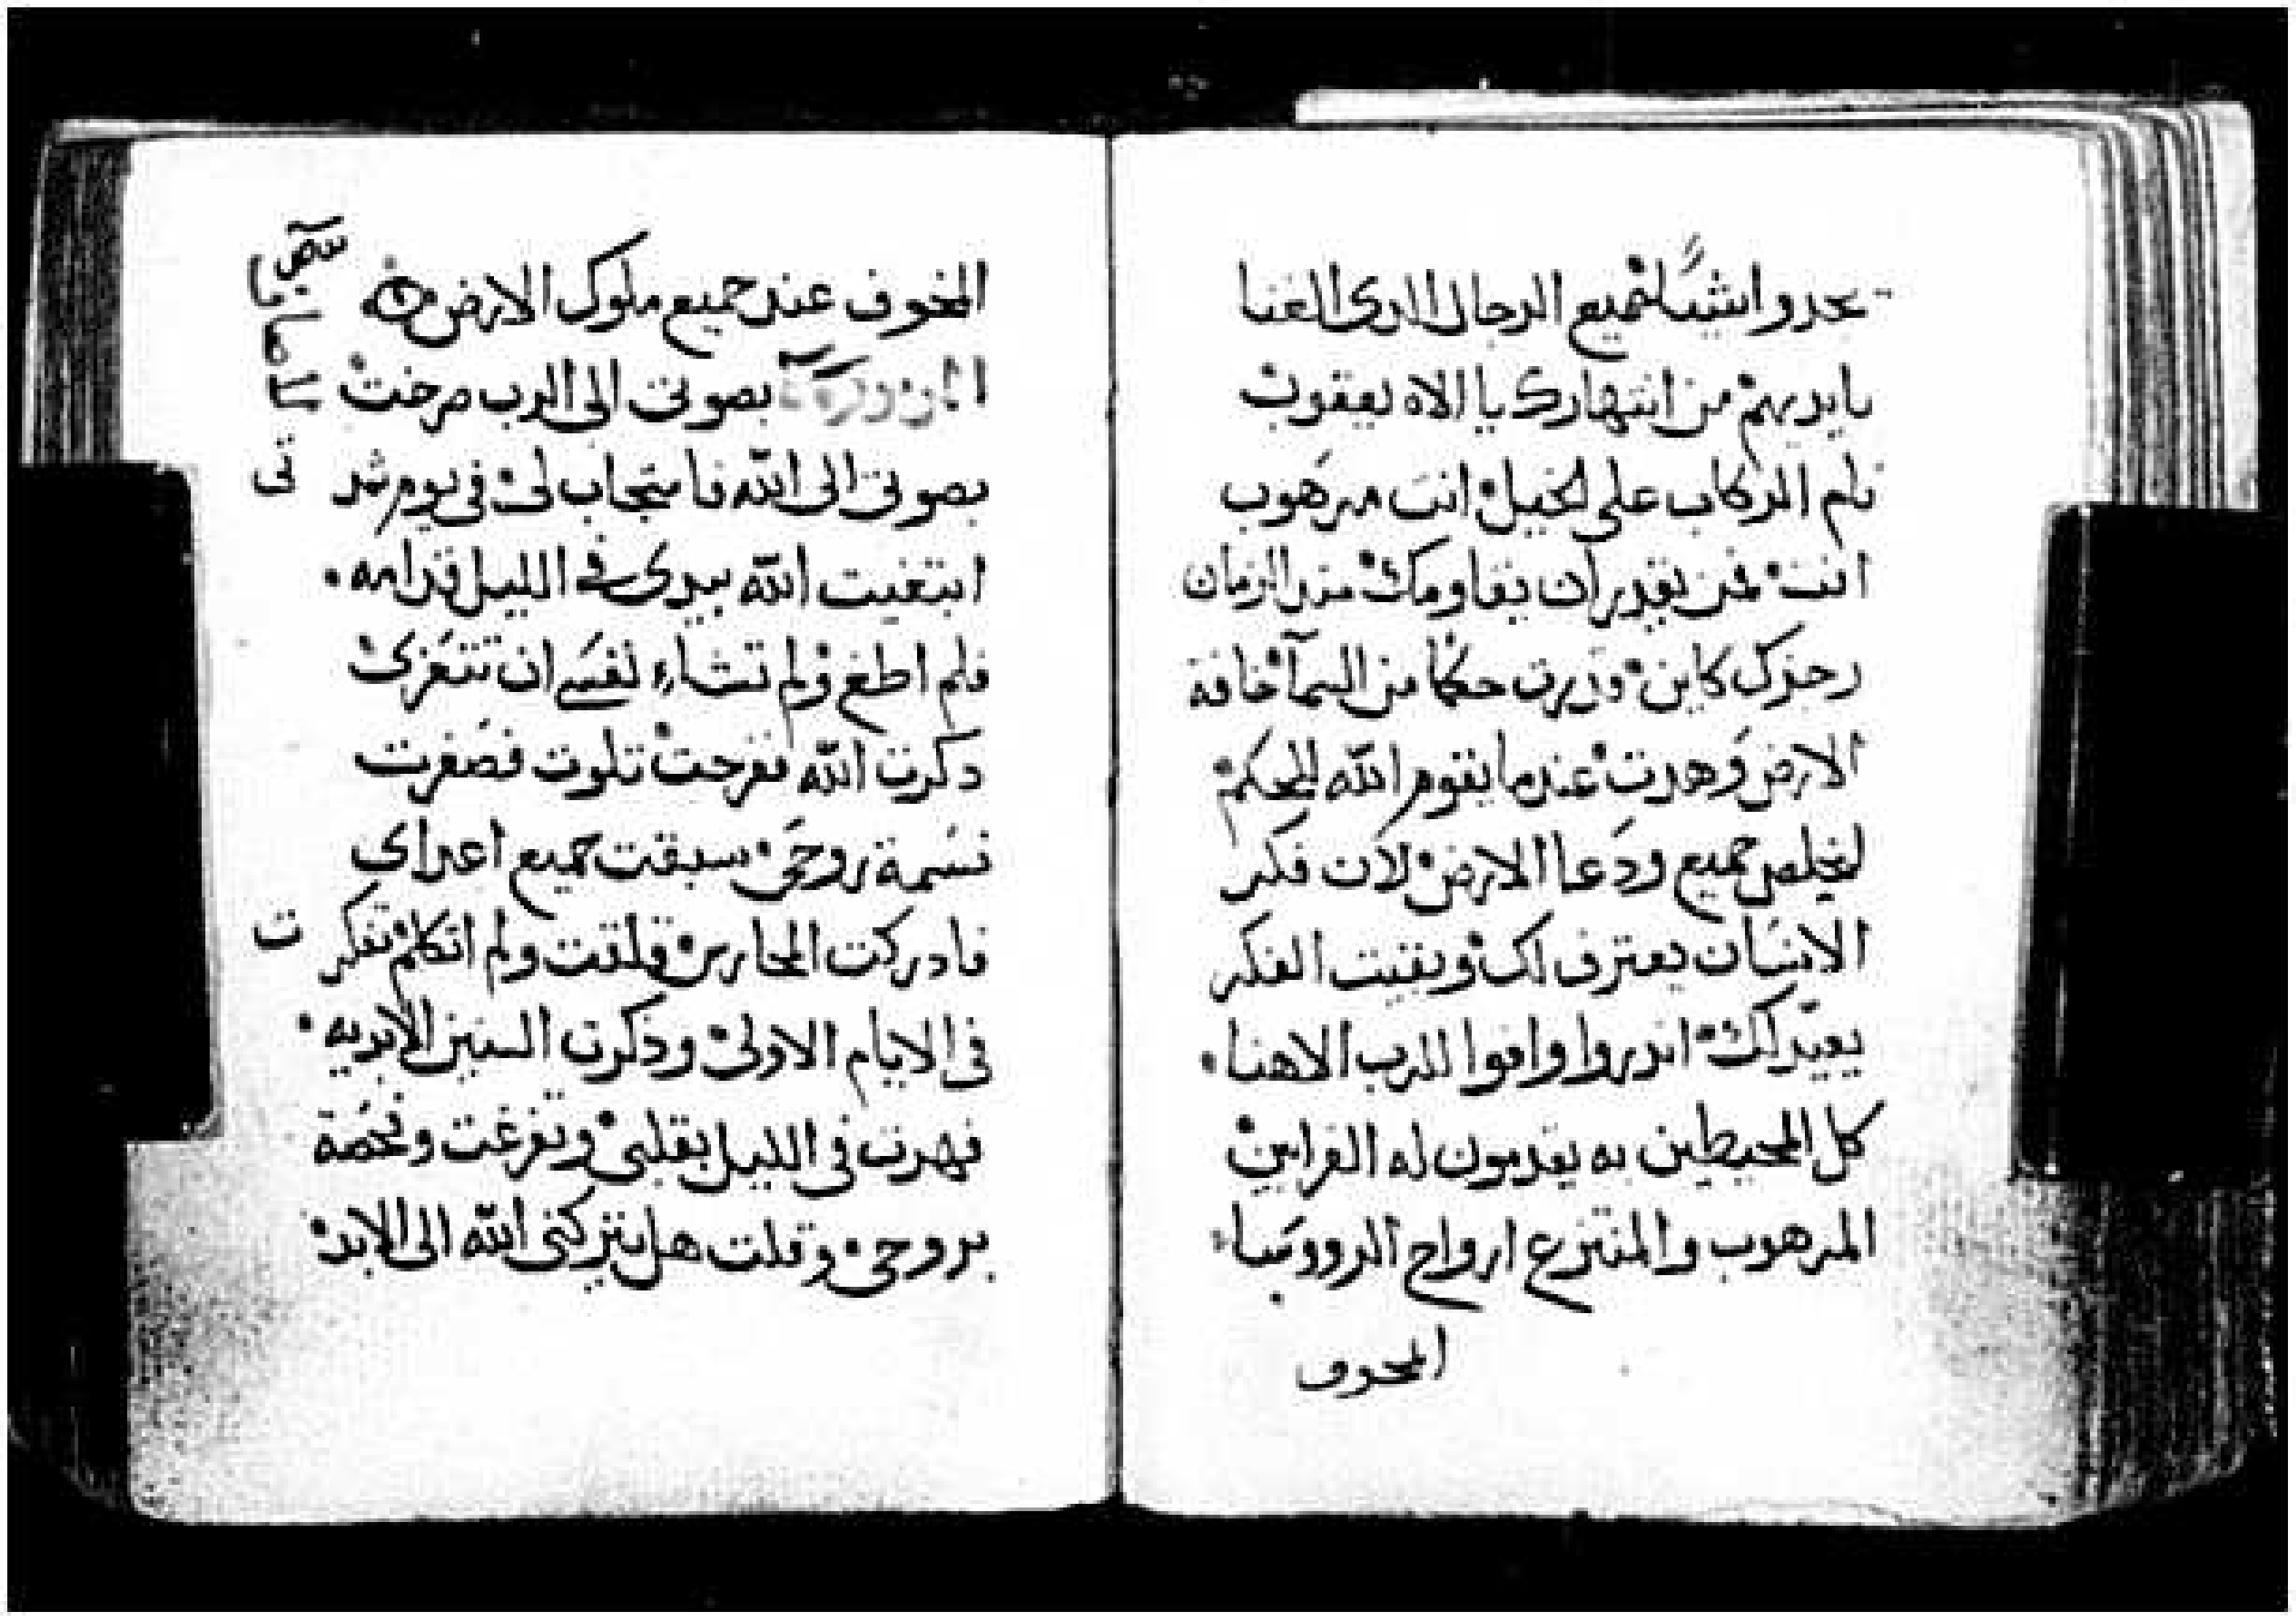 تجدوا شيًا لجميع الرجال الدى الغنا
بايديهم من انتهارك يا الاه يعقوب
نام الركاب على الخيل انت مرهوب
انت فمن يقدر ان يقاومك منذ الزمان
رجزك كاين وزيرت حكمًا من السمآ خافة
الارض وهدت عندما يقوم الله للحكم
ليخلص جميع ودعا الارض لان فكر
الانسان يعترف لك وبقيت الفكر
يعيد لك اندروا واوفوا للرب الاهنا
كل المحيطين به يقدمون له القرابين
المرهوب والمنتزع ارواح الرووسا
المخوف
المخوف عند جميع ملوك الارض
بصوتى الى الرب صرخت
بصوتى الى الله فاستجاب لى فى يوم شد
تى
ابتغيت الله بيدى في الليل قدامه
فلم اطغ ولم تشاء نفسى ان تتعزى
دكرت الله ففرحت تلوت فصغرت
نسمة روحى سبقت جميع اعداى
فادركت المحارس قلقت ولم اتكلم تفكر
ت
فى الايام الاولى وذكرت السنين الابديه
فهدت فى الليل بقلبى وتفرغت وفحصة
بروحى وقلت هل يتركنى الله الى الابد